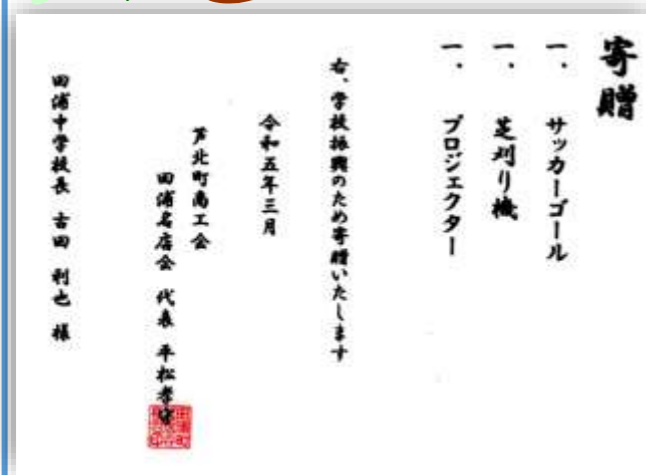 寄贈
一、 サッカーゴール
一、 芝刈り機
一、 プロジェクター
右、学校振興のため寄贈いたします
令和五年三月
芦北町商工会
田浦名店会 代表 平松孝守
田浦中学校長 吉田 利也 様